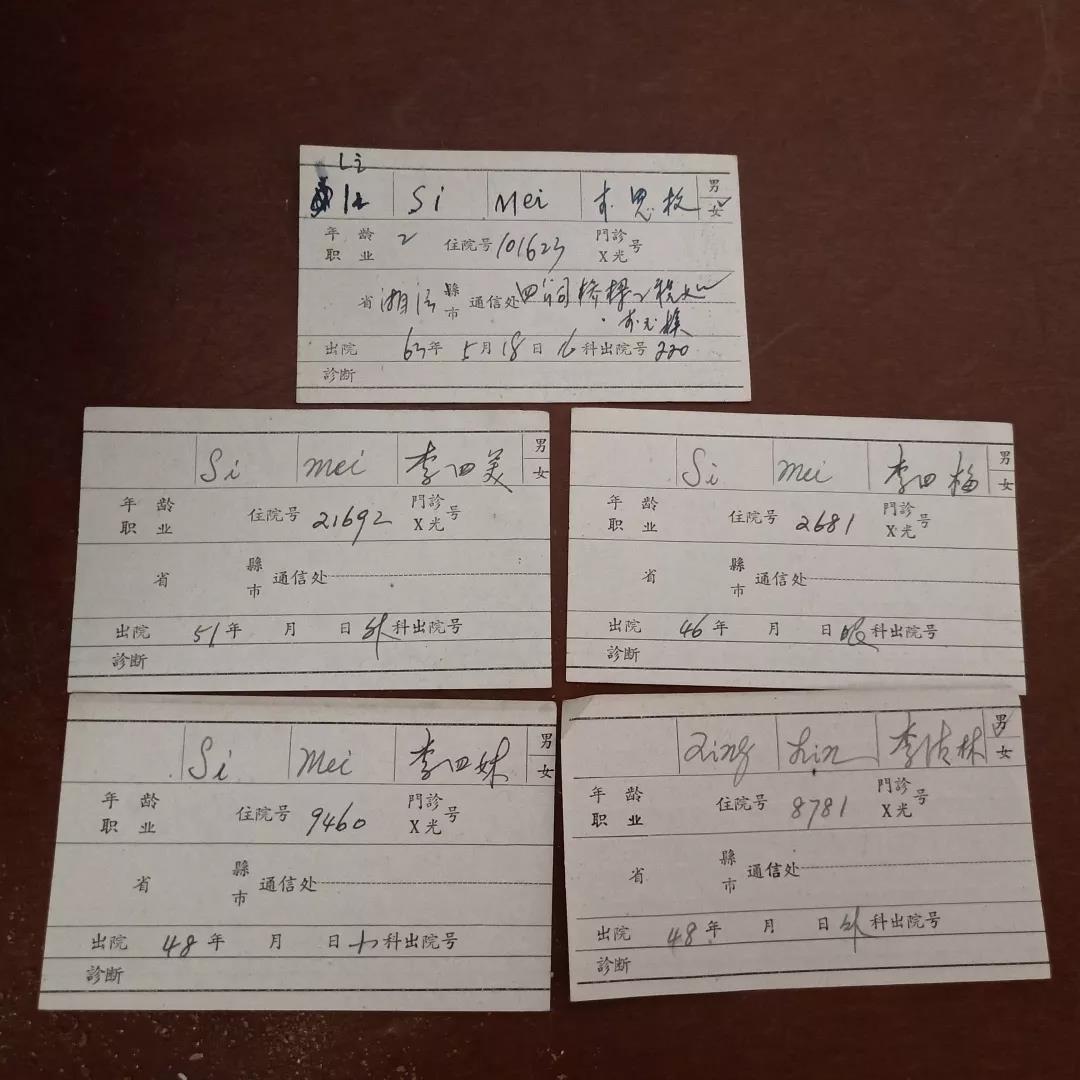 Li
Si Mei 李思枚 男
女
年龄 2 住院号 101623 門診 号
职业 X光
省 湘潭 縣 通信处
市
出院 63年 5月18日 科出院号 220
診断
Si Mei 李四美 男
女
年龄 住院号 21692 門診 号
职业 X光
省 縣 通信处
市
出院 51年 月 日 外科出院号
診断
Si Mei 李四梅 男
女
年龄 住院号 2681 門診 号
职业 X光
省 縣 通信处
市
出院 46年 月 日 眼科出院号
診断
Si Mei 李四妹 男
女
年龄 住院号 9460 門診 号
职业 X光
省 縣 通信处
市
出院 48年 月 日 科出院号
診断
Lin 李 林 男
女
年龄 住院号 8781 門診 号
职业 X光
省 縣 通信处
市
出院 48年 月 日 外科出院号
診断